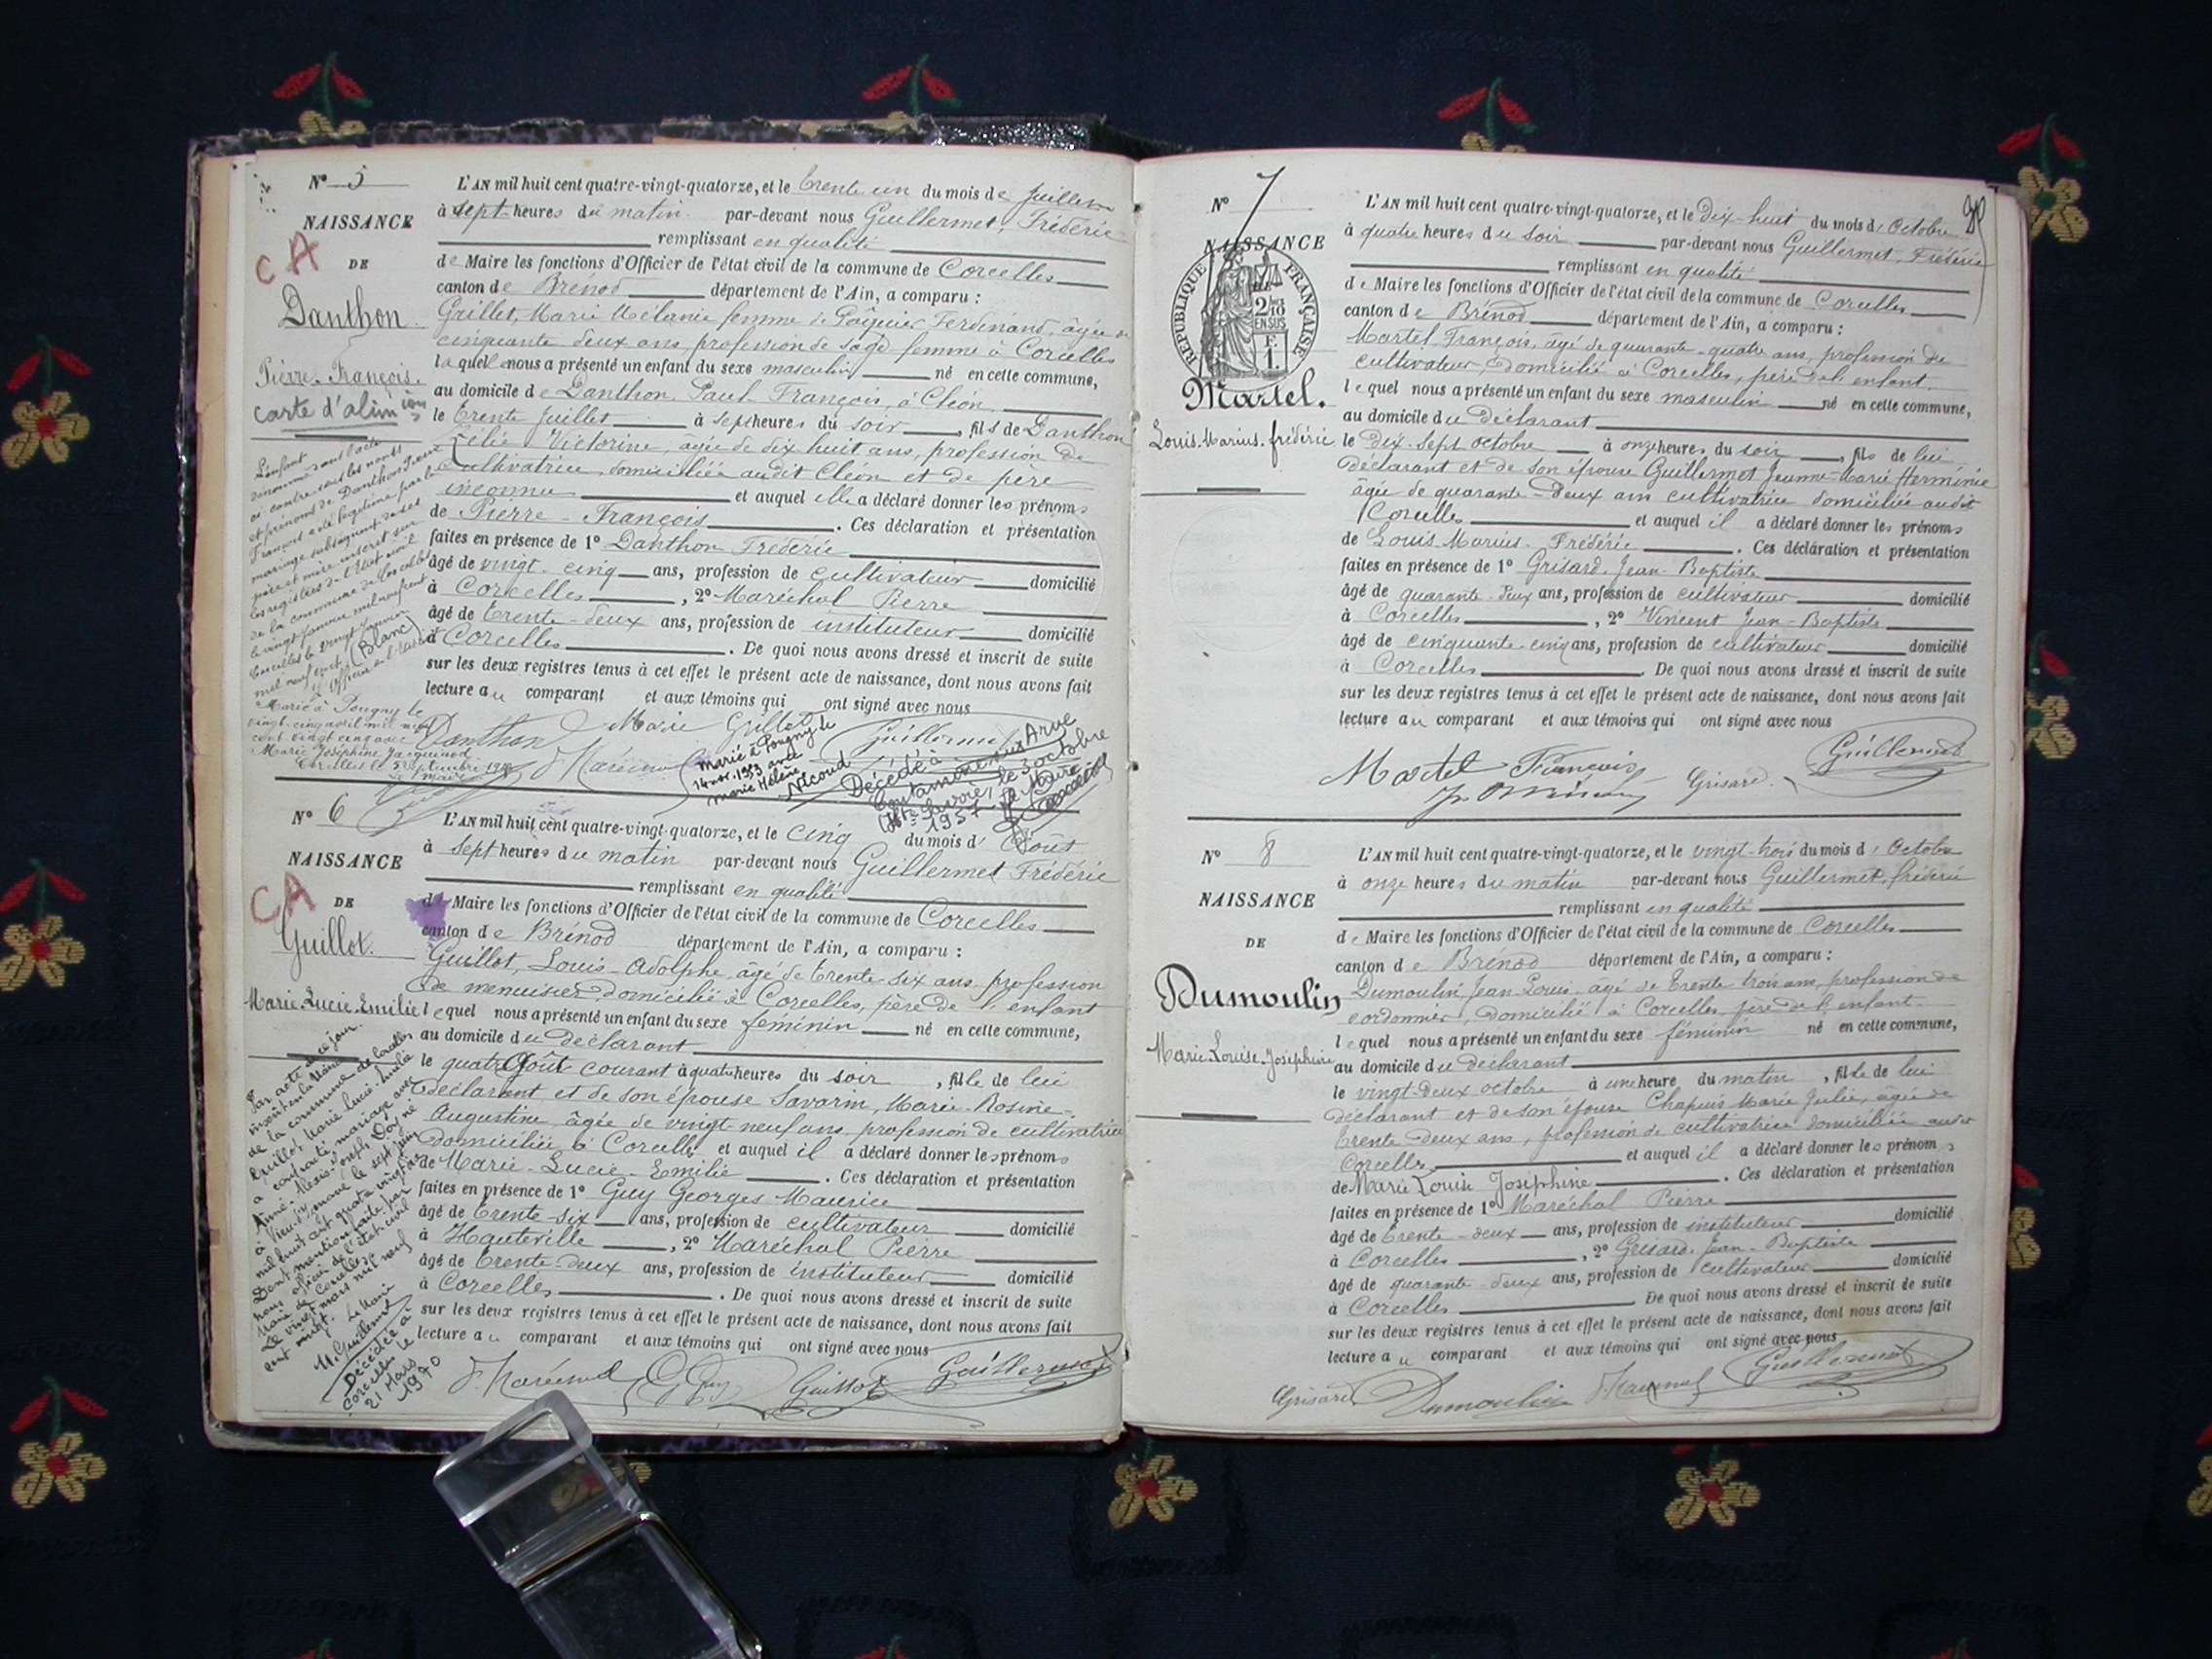 N° 5
NAISSANCE
DE
CA
Danthon
Pierre-François.
carte d'alim
L'AN mil huit cent quatre-vingt-quatorze, et le trente un du mois de Juillet
à sept heures du matin par-devant nous Guillermet, Frédéric
remplissant en qualité
de Maire les fonctions d'Officier de l'état civil de la commune de Corcelles
canton de Brénod département de l'Ain, a comparu :
Grillet, Marie Mélanie femme de Pâquier Ferdinand, âgée de
cinquante deux ans, profession de sage femme à Corcelles
laquelle nous a présenté un enfant du sexe masculin né en cette commune,
au domicile de Danthon Paul François, à Cléon
le trente Juillet à sept heures du soir, fils de Danthon
Victorine, agée de dix huit ans, profession de
cultivatrice domiciliée audit Cléon et de père
inconnu et auquel elle a déclaré donner les prénoms
de Pierre-François. Ces déclaration et présentation
faites en présence de 1° Danthon Frédéric
âgé de vingt-cinq ans, profession de cultivateur domicilié
à Corcelles, 2° Maréchal Pierre
âgé de trente-deux ans, profession de instituteur domicilié
à Corcelles. De quoi nous avons dressé et inscrit de suite
sur les deux registres tenus à cet effet le présent acte de naissance, dont nous avons fait
lecture au comparant et aux témoins qui ont signé avec nous
Danthon Marie Grillet Guillermet
L'enfant
dénommé dans l'acte
ci contre sous les noms
et prénoms de Danthon Pierre
François a été légitimé par le
mariage subséquent de ses
père et mère inscrit sur
les registres de l'Etat civil
de la commune de Corcelles
le vingt janvier mil neuf cent
Corcelles le vingt janvier
mil neuf cent (Blanc)
Marié à Pougny le
vingt-cinq avril mil neuf
cent vingt cinq avec
Marie Joséphine Jacquinod
Corcelles le 5 septembre
Le Maire
Marié à Pougny le
14 nov. 1953 avec
Marie Hélène
Nicoud
Décédé à
Contamine sur Arve
(Hte Savoie) le 3 octobre
1957 Le Maire
N° 6
NAISSANCE
DE
CA
Guillot.
Marie-Lucie-Emilie
L'AN mil huit cent quatre-vingt-quatorze, et le cinq du mois d'Août
à sept heures du matin par-devant nous Guillermet Frédéric
remplissant en qualité
de Maire les fonctions d'Officier de l'état civil de la commune de Corcelles
canton de Brénod département de l'Ain, a comparu :
Guillot, Louis-Adolphe âgé de trente-six ans profession
de menuisier domicilié à Corcelles, père de l'enfant
lequel nous a présenté un enfant du sexe féminin né en cette commune,
au domicile du déclarant
le quatre Août courant à quatre heures du soir, fille de lui
déclarant et de son épouse Savarin, Marie-Rosine-
Augustine, âgée de vingt-neuf ans, profession de cultivatrice
domiciliée à Corcelles et auquel il a déclaré donner les prénoms
de Marie-Lucie-Emilie. Ces déclaration et présentation
faites en présence de 1° Guy Georges Maurice
âgé de trente-six ans, profession de cultivateur domicilié
à Hauteville, 2° Maréchal Pierre
âgé de trente-deux ans, profession de instituteur domicilié
à Corcelles. De quoi nous avons dressé et inscrit de suite
sur les deux registres tenus à cet effet le présent acte de naissance, dont nous avons fait
lecture au comparant et aux témoins qui ont signé avec nous
Guillot Guillermet
Par acte de ce jour
inscrit en la Mairie
de la commune de Corcelles
Guillot, Marie Lucie-Emilie
a contracté mariage avec
Anne-Alexis-Joseph
mil huit cent quatre vingt
Dont mention faite par
nous officier de l'état civil
Maire de Corcelles
Le vingt mars mil neuf
cent vingt. Le Maire
Guillermet
Décédée à
Corcelles le
21 Mars
1970
N° 7
NAISSANCE
DE
RÉPUBLIQUE FRANÇAISE
2/10
EN SUS
F.
1.
Martel.
Louis-Marius-frédéric
L'AN mil huit cent quatre-vingt-quatorze, et le Dix-huit du mois d'Octobre
à quatre heures du soir par-devant nous Guillermet, Frédéric
remplissant en qualité
de Maire les fonctions d'Officier de l'état civil de la commune de Corcelles
canton de Brénod département de l'Ain, a comparu :
Martel François, âgé de quarante-quatre ans, profession de
cultivateur, domicilié à Corcelles, père de l'enfant.
lequel nous a présenté un enfant du sexe masculin né en cette commune,
au domicile du déclarant
le Dix-Sept octobre à onze heures du soir, fils de lui
déclarant et de son épouse Guillermet Jeanne-Marie Herminie
âgée de quarante-deux ans cultivatrice domiciliée audit
Corcelles et auquel il a déclaré donner les prénoms
de Louis-Marius-Frédéric. Ces déclaration et présentation
faites en présence de 1° Grisard Jean-Baptiste
âgé de quarante-deux ans, profession de cultivateur domicilié
à Corcelles, 2° Vincent Jean-Baptiste
âgé de cinquante-cinq ans, profession de cultivateur domicilié
à Corcelles. De quoi nous avons dressé et inscrit de suite
sur les deux registres tenus à cet effet le présent acte de naissance, dont nous avons fait
lecture au comparant et aux témoins qui ont signé avec nous
Martel François Grisard Guillermet
N° 8
NAISSANCE
DE
Dumoulin
Marie-Louise-Joséphine
L'AN mil huit cent quatre-vingt-quatorze, et le vingt-trois du mois d'Octobre
à onze heures du matin par-devant nous Guillermet, frédéric
remplissant en qualité
de Maire les fonctions d'Officier de l'état civil de la commune de Corcelles
canton de Brénod département de l'Ain, a comparu :
Dumoulin Jean-Louis âgé de trente trois ans, profession de
cordonnier, domicilié à Corcelles père de l'enfant.
lequel nous a présenté un enfant du sexe féminin né en cette commune,
au domicile du déclarant
le vingt-deux octobre à une heure du matin, fille de lui
déclarant et de son épouse Chapuis Marie Julie, âgée de
trente-deux ans, profession de cultivatrice domiciliée audit
Corcelles et auquel il a déclaré donner les prénoms
de Marie Louise Joséphine. Ces déclaration et présentation
faites en présence de 1° Maréchal Pierre
âgé de trente-deux ans, profession de instituteur domicilié
à Corcelles, 2° Grisard Jean-Baptiste
âgé de quarante-deux ans, profession de cultivateur domicilié
à Corcelles. De quoi nous avons dressé et inscrit de suite
sur les deux registres tenus à cet effet le présent acte de naissance, dont nous avons fait
lecture au comparant et aux témoins qui ont signé avec nous
Grisard Dumoulin Guillermet